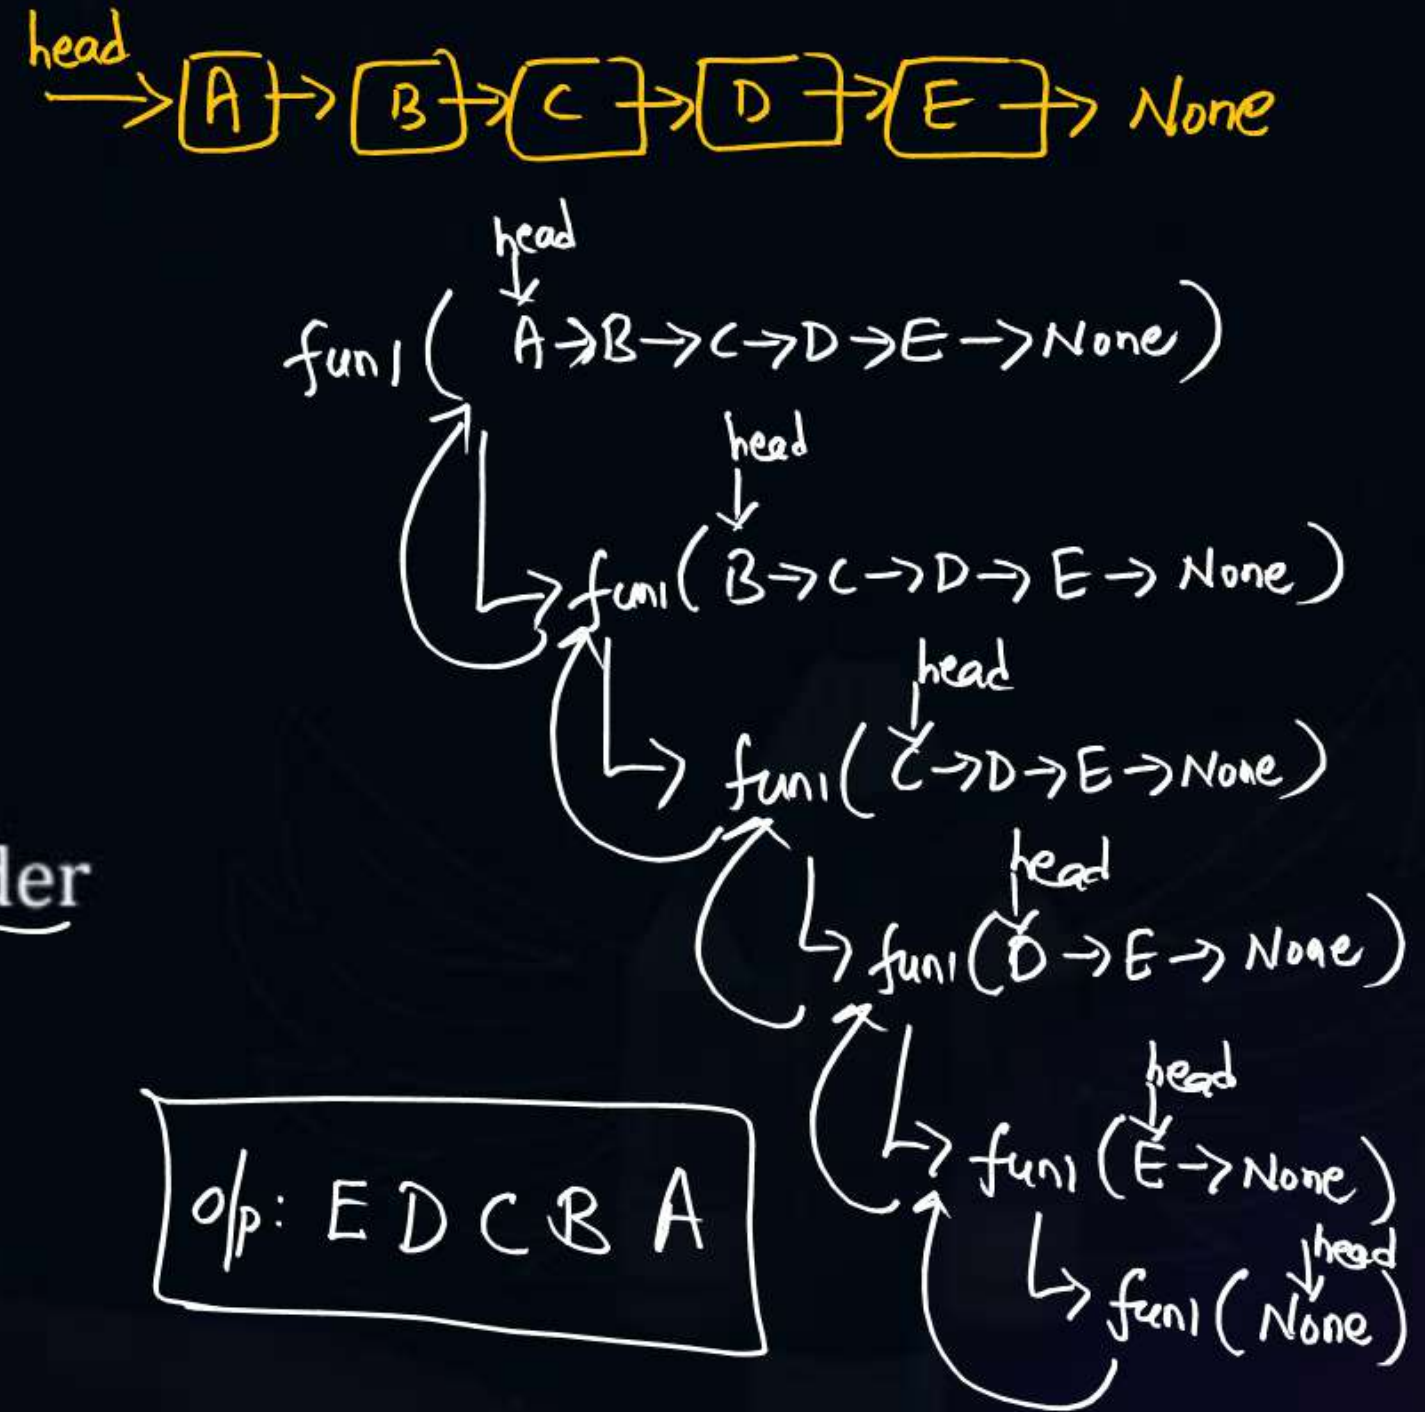 head
→ A → B → C → D → E → None
head
fun1( A → B → C → D → E → None )
head
fun1( B → C → D → E → None )
head
fun1( C → D → E → None )
der
head
fun1( D → E → None )
head
fun1( E → None )
o/p: E D C B A
head
fun1( None )